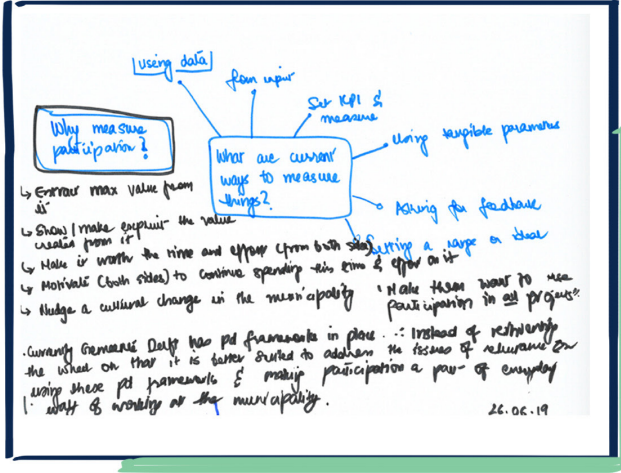 using data
from input
Set KPI &
measure
Using tangible parameters
Why measure
participation?
What are current
ways to measure
things?
Asking for feedback
Setting a range or ideal
↳ Extract max value from
it
↳ Show / make explicit the value
created from it
↳ Make it worth the time and effort (from both sides)
↳ Motivate (both sides) to continue spending this time & effort on it
↳ Nudge a cultural change in the municipality
"Make them want to use
participation in all projects".
. Currently Gemeente Delft has pd frameworks in place. ∴ Instead of reinventing
the wheel on that it is better suited to address the issues of relevance
using these pd frameworks & making participation a part of everyday
way of working at the municipality.
26.06.19